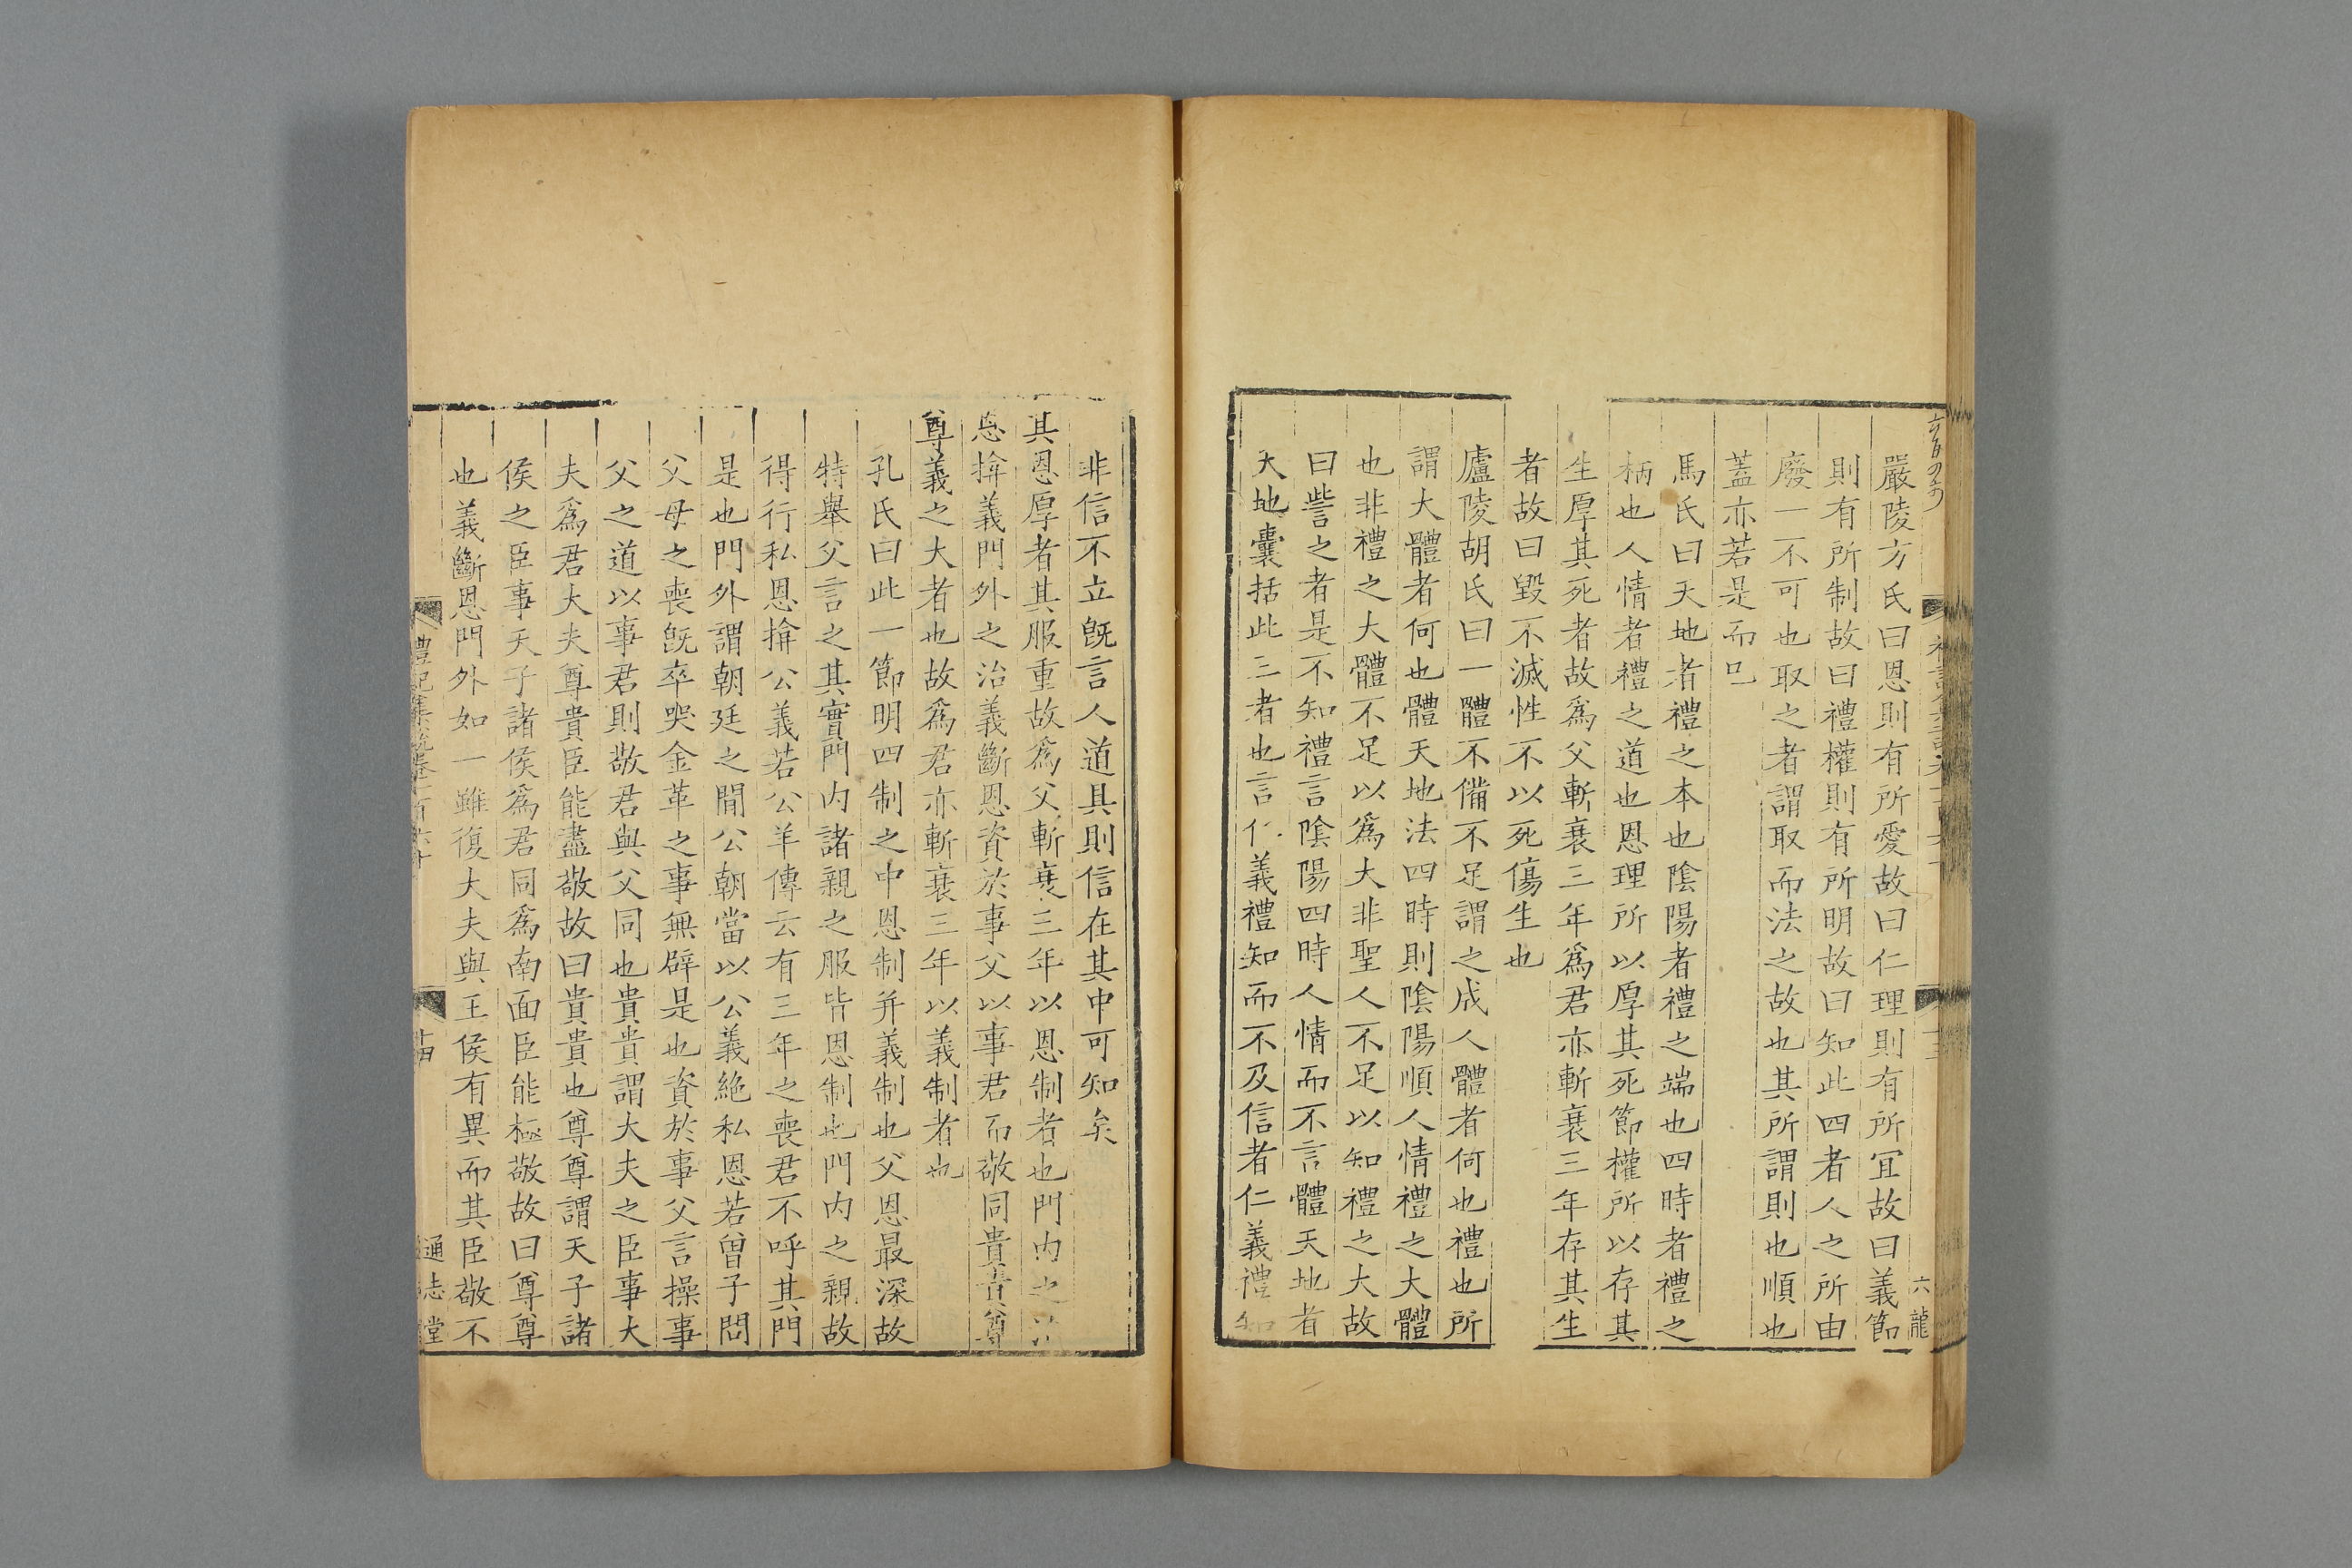 嚴陵方氏曰恩則有所愛故曰仁理則有所冝故曰義節
則有所制故曰禮權則有所明故曰知此四者人之所由
廢一不可也取之者謂取而法之故也其所謂則也順也
蓋亦若是而已
馬氏曰天地者禮之本也陰陽者禮之端也四時者禮之
柄也人情者禮之道也恩理所以厚其死節權所以存其
生厚其死者故爲父斬衰三年爲君亦斬衰三年存其生
者故曰毀不滅性不以死傷生也
廬陵胡氏曰一體不備不足謂之成人體者何也禮也所
謂大體者何也體天地法四時則陰陽順人情禮之大體
也非禮之大體不足以爲大非聖人不足以知禮之大故
曰訾之者是不知禮言陰陽四時人情而不言體天地者
天地囊括此三者也言仁義禮知而不及信者仁義禮知
六龍
非信不立旣言人道具則信在其中可知矣
其恩厚者其服重故爲父斬衰三年以恩制者也門內之治
恩揜義門外之治義斷恩資於事父以事君而敬同貴貴尊
尊義之大者也故爲君亦斬衰三年以義制者也
孔氏曰此一節明四制之中恩制并義制也父恩最深故
特舉父言之其實門內諸親之服皆恩制也門內之親故
得行私恩揜公義若公羊傳云有三年之喪君不呼其門
是也門外謂朝廷之間公朝當以公義絶私恩若曾子問
父母之喪旣卒哭金革之事無辟是也資於事父言操事
父之道以事君則敬君與父同也貴貴謂大夫之臣事大
夫爲君大夫尊貴臣能盡敬故曰貴貴也尊尊謂天子諸
侯之臣事天子諸侯爲君同爲南面臣能極敬故曰尊尊
也義斷恩門外如一雖復大夫與王侯有異而其臣敬不
禮記集說卷一百六十
十四
通志堂